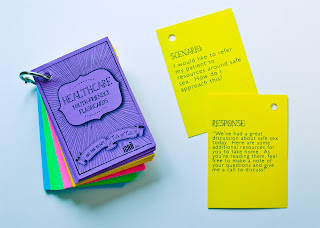 HEALTHCARE
YOUTH-FRIENDLY
FLASHCARDS
SCENARIO
I would like to refer
my patient to
resources around safe
sex. How do I
approach this?
RESPONSE
"We've had a great
discussion about safe sex
today. Here are some
additional resources for
you to take home. As
you're reading them, feel
free to make a note of
your questions and give
me a call to discuss."